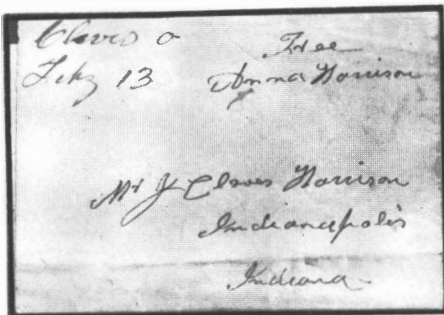 Cleves O
Feby 13
Free
Anna Harrison
Mr J Cleves Harrison
Indianapolis
Indiana